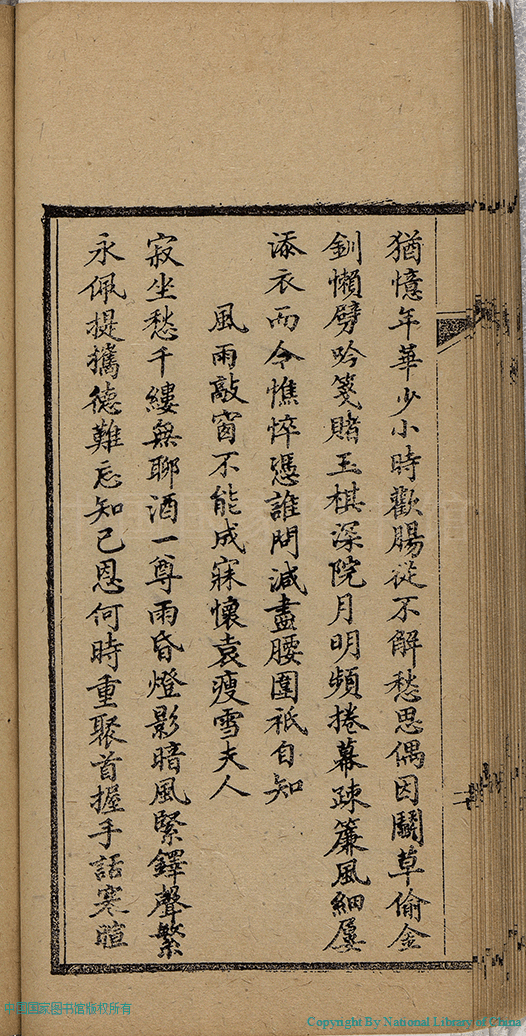 猶憶年華少小時歡腸從不解愁思偶因鬭草偷金
釧懶劈吟箋賭玉棋深院月明頻捲幕疎簾風細屢
添衣而令憔悴憑誰問減盡腰圍祇自知
風雨敲窗不能成寐懷袁瘦雪夫人
寂坐愁千縷無聊酒一尊雨昏燈影暗風緊鐸聲繁
永佩提攜德難忘知己恩何時重聚首握手話寒暄
中国国家图书馆版权所有
Copyright By National Library of China